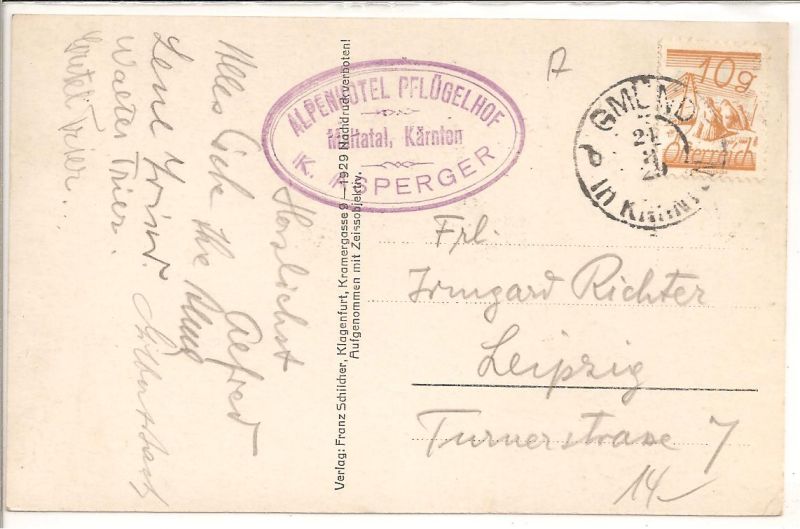 Alles Liebe Ihr
Herzlichst
Alfred
Lene
Walter Trier.
Gretel Trier...
ALPENHOTEL PFLÜGELHOF
Maltatal, Kärnten
K. ASPERGER
Verlag: Franz Schilcher, Klagenfurt, Kramergasse 9 — 1929 Nachdruck verboten!
Aufgenommen mit Zeissobjektiv.
10g
Österreich
GMÜND
in KÄRNTEN
Frl.
Irmgard Richter
Leipzig
Turnerstrasse 7
14-